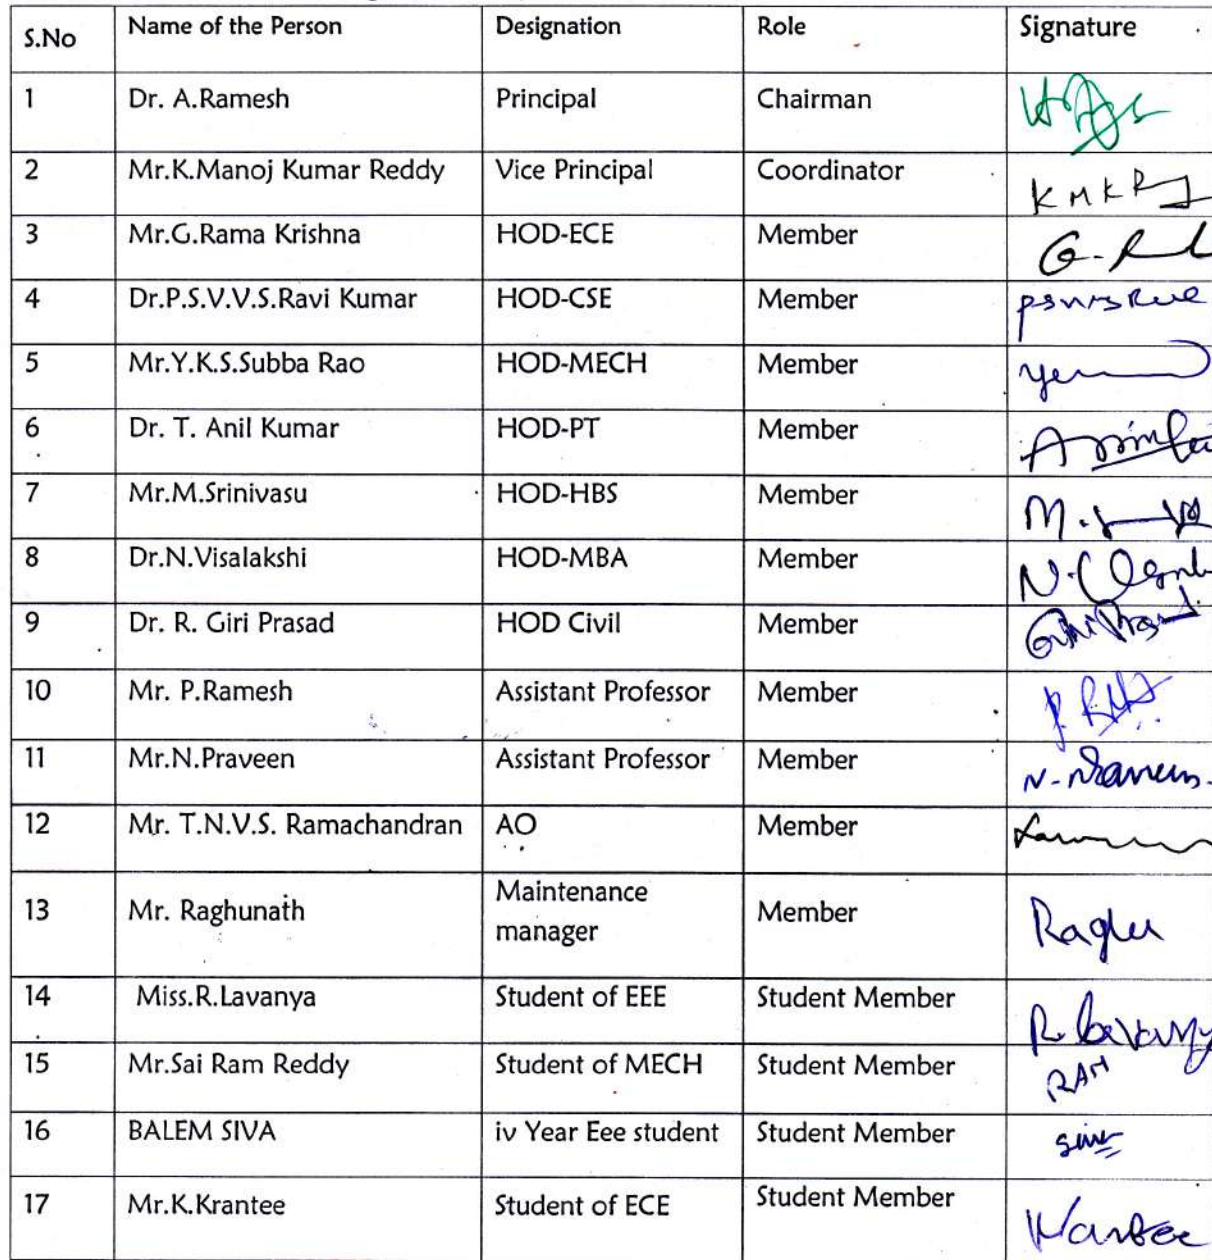 S.No Name of the Person Designation Role Signature
1 Dr. A.Ramesh Principal Chairman
2 Mr.K.Manoj Kumar Reddy Vice Principal Coordinator KMKR
3 Mr.G.Rama Krishna HOD-ECE Member
4 Dr.P.S.V.V.S.Ravi Kumar HOD-CSE Member
5 Mr.Y.K.S.Subba Rao HOD-MECH Member
6 Dr. T. Anil Kumar HOD-PT Member
7 Mr.M.Srinivasu HOD-HBS Member
8 Dr.N.Visalakshi HOD-MBA Member
9 Dr. R. Giri Prasad HOD Civil Member Giri Prasad
10 Mr. P.Ramesh Assistant Professor Member
11 Mr.N.Praveen Assistant Professor Member
12 Mr. T.N.V.S. Ramachandran AO Member
13 Mr. Raghunath Maintenance
manager Member Raghu
14 Miss.R.Lavanya Student of EEE Student Member R. Lavanya
15 Mr.Sai Ram Reddy Student of MECH Student Member RAM
16 BALEM SIVA iv Year Eee student Student Member
17 Mr.K.Krantee Student of ECE Student Member